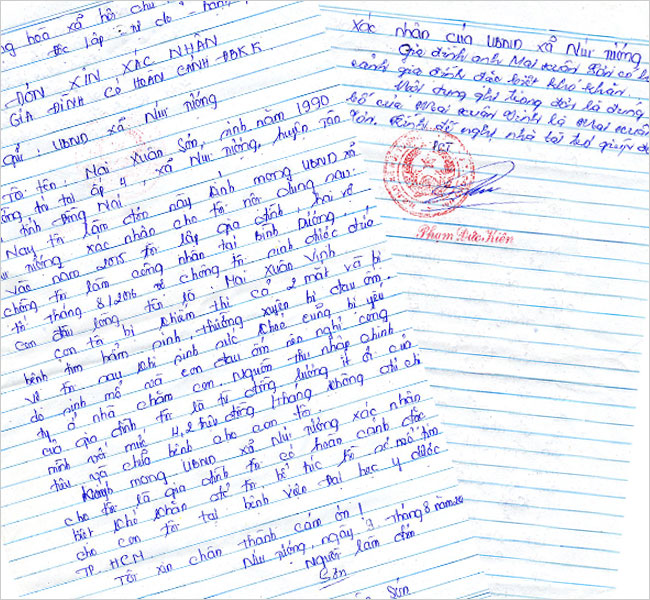 hoà xã hội chủ
Độc lập - tự do
ĐƠN XIN XÁC NHẬN
GIA ĐÌNH CÓ HOÀN CẢNH ĐBKK
gửi : UBND xã Núi Tượng
Tôi tên : Mai Xuân Sơn, sinh năm 1990
trú tại ấp 4, xã Núi Tượng, huyện Tân
tỉnh Đồng Nai,
Nay tôi làm đơn này kính mong UBND xã
Tượng xác nhận cho tôi nội dung sau:
Vào năm 2015 tôi lập gia đình, hai vợ
chồng tôi làm công nhân tại Bình Dương,
tới tháng 8/2016 vợ chồng tôi sinh được đứa
con đầu lòng tên là : Mai Xuân Vinh
Con tôi bị khiếm thị cả 2 mắt và bị
bệnh tim bẩm sinh, thường xuyên bị đau ốm.
Vợ tôi sau khi sinh sức khỏe cũng bị yếu
do sinh mổ và con đau ốm nên nghỉ công
ty ở nhà chăm con. Nguồn thu nhập chính
của gia đình tôi là từ đồng lương ít ỏi của
mình với mức 4,2 triệu đồng/tháng không đủ chi
tiêu và chữa bệnh cho con tôi.
Kính mong UBND xã Núi Tượng xác nhận
cho tôi là gia đình tôi có hoàn cảnh đặc
biệt khó khăn để tôi bổ túc hồ sơ mổ tim
cho con tôi tại bệnh viện Đại học Y dược
TP HCM
Tôi xin chân thành cám ơn !
Núi Tượng, ngày 9 tháng 8 năm
Người làm đơn
Sơn
Sơn
Xác nhận của UBND xã Núi Tượng
Gia đình anh Mai Xuân Sơn có
cảnh gia đình đặc biệt khó khăn.
Nội dung ghi trong đơn là đúng
bố của Mai Xuân Vinh là Mai Xuân
Sơn. Kính đề nghị nhà tài trợ giúp đỡ
PCT
Phạm Đức Kiên